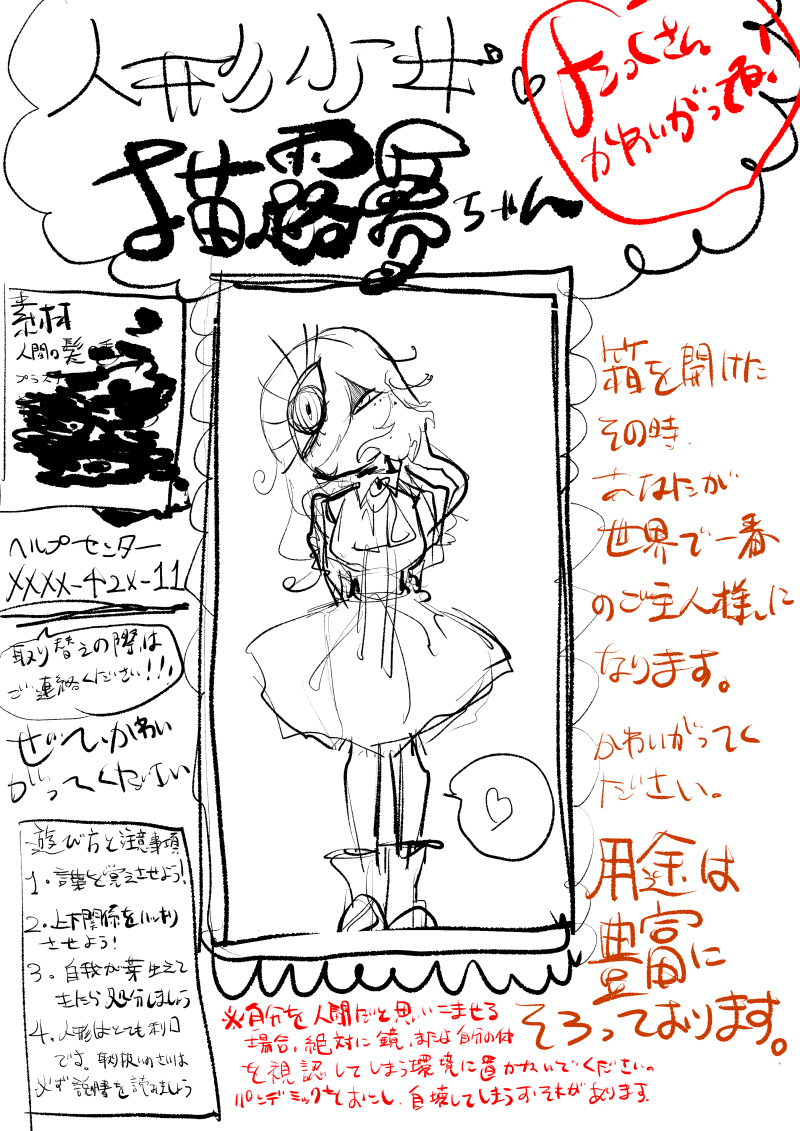 人形少女。
たっくさん
かわいがってね!
描露夢ちゃん
素材
人間の髪
プラス
ヘルプセンター
XXXX-42X-11
取り替えの際は
ご連絡ください!!!
ぜひかわい
がってください
遊び方と注意事項
1.言葉を覚えさせよう!
2.上下関係をハッキリ
させよう!
3.自我が芽生えて
きたら処分しましょう
4.人形はとても利口
です。取り扱いのさいは
必ず説明書を読みましょう
箱を開けた
その時
あなたが
世界で一番
のご主人様に
なります。
かわいがってく
ださい。
用途は
豊富に
そろっております。
※自分を人間だと思いこませる
場合、絶対に鏡、または自分の体
を視認してしまう環境に置かないでください。
パンデミックをおこし、自壊してしまうおそれがあります。